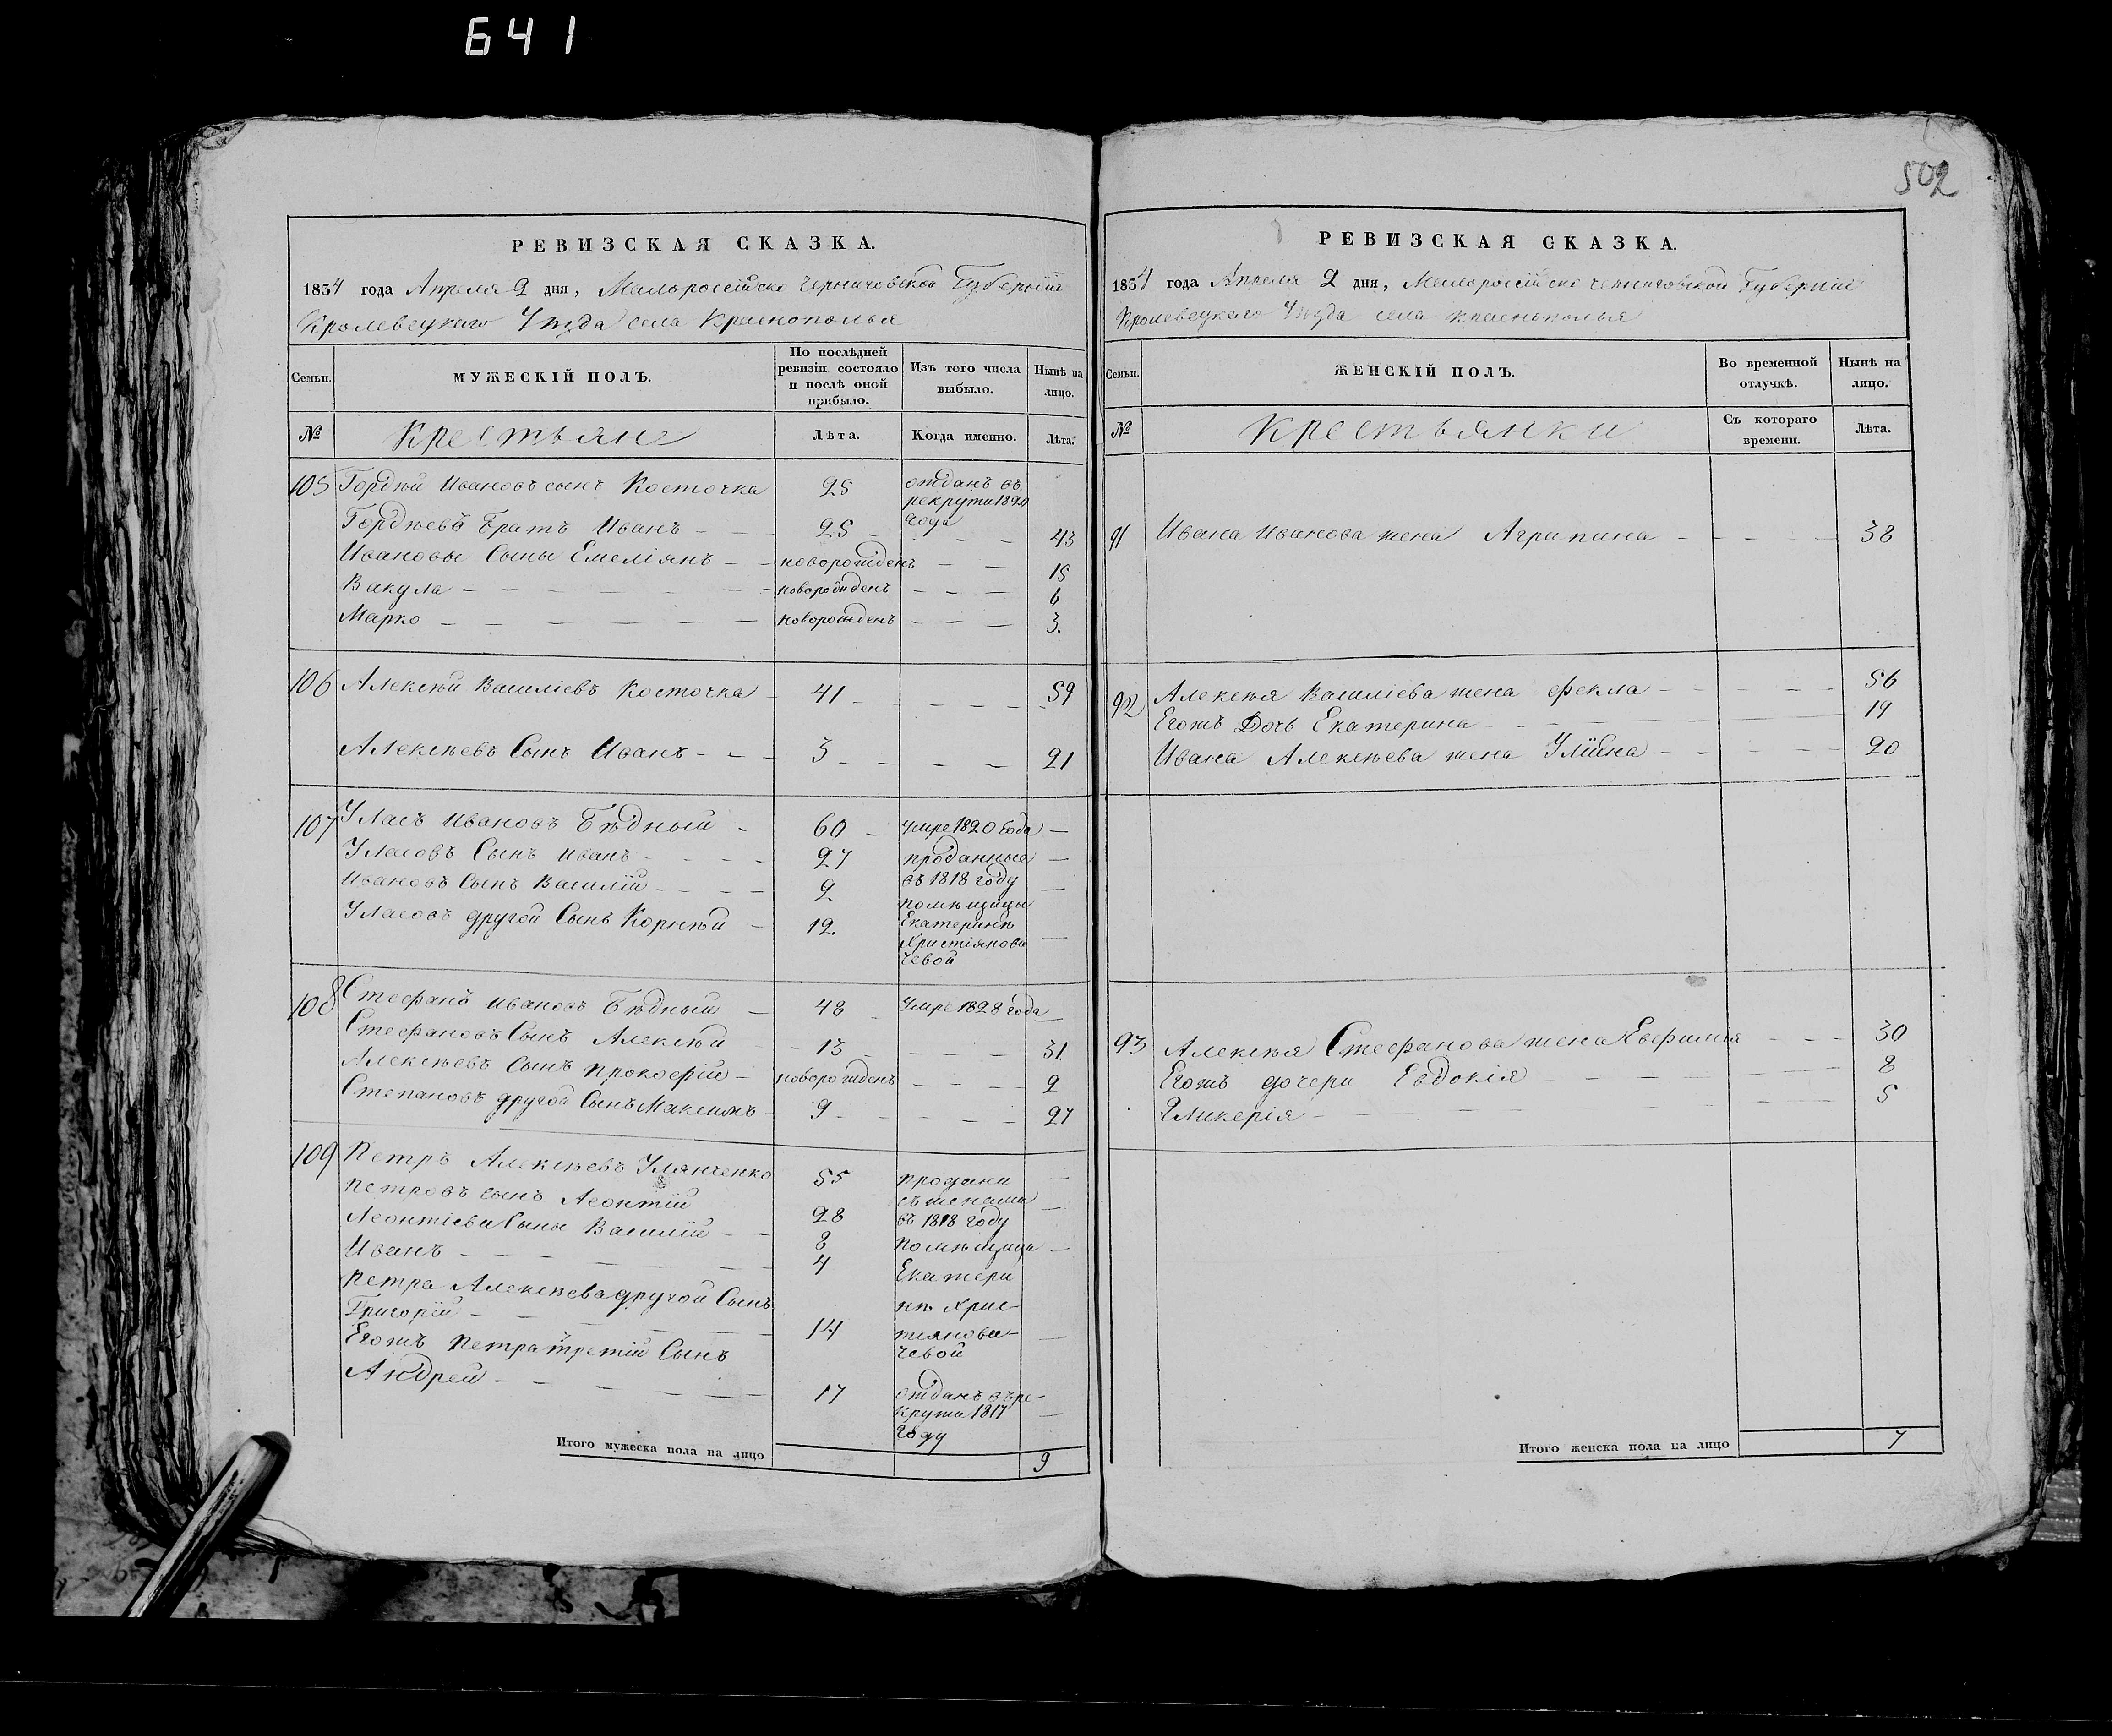 641
502
РЕВИЗСКАЯ СКАЗКА.
1834 года Апреля 2 дня, Малороссійско Черниговской Губерніи
Кролевецкаго Уезда села Краснополья
Семьи.
МУЖЕСКІЙ ПОЛЪ.
По послѣдней ревизіи состояло и послѣ оной прибыло.
Изъ того числа выбыло.
Нынѣ на лицо.
№ Крестьяне Лѣта. Когда именно. Лѣта.
105 Гордѣй Ивановъ сынъ Косточка 25 отданъ въ рекруты 1820 года
Гордѣевъ братъ Иванъ 25 43
Ивановы Сыны Емеліянъ новорожденъ 15
Вакула новорожденъ 6
Марко новорожденъ 3.
106 Алексѣй Василіевъ Косточка 41 59
Алексѣевъ Сынъ Иванъ 3 21
107 Уласъ Ивановъ Бѣдный 60 Умре 1820 года
Уласовъ Сынъ Иванъ 27 проданные
Ивановъ Сынъ Василій 9 въ 1818 году
помѣщицы
Уласовъ другой Сынъ Корнѣй 12. Екатеринѣ
Християнови
чевой
108 Стефанъ Ивановъ Бѣдный 48 Умре 1828 года
Стефановъ Сынъ Алексѣй 13 31
Алексѣевъ Сынъ Прокофій новорожденъ 2
Степановъ другой Сынъ Максимъ 9 27
109 Петръ Алексѣевъ Улянченко 55 проданы
Петровъ сынъ Леонтій 28 съ женами
въ 1818 году
Леонтіеви Сыны Василій 8 помѣщицы
Иванъ 4 Екатери
Петра Алексѣева другой Сынъ нѣ Хрис-
Григорій 14 тянови-
чевой
Егожъ Петра третій Сынъ
Андрей 17 отданъ въ ре-
круты 1817
году
Итого мужеска пола на лицо 9
РЕВИЗСКАЯ СКАЗКА.
1834 года Апреля 2 дня, Малороссійско Черниговской Губерніи
Кролевецкаго Уезда села Краснополья
Семьи.
ЖЕНСКІЙ ПОЛЪ.
Во временной отлучкѣ.
Нынѣ на лицо.
№ Крестьянки Съ котораго времени. Лѣта.
91 Ивана Иванова жена Агрипина 38
92 Алексѣя Василіева жена Фекла 56
Егожъ Дочь Екатерина 19
Ивана Алексѣева жена Уліяна 20
93 Алексѣя Стефанова жена Евфимія 30
Егожъ дочери Евдокія 8
Гликерія 5
Итого женска пола на лицо 7